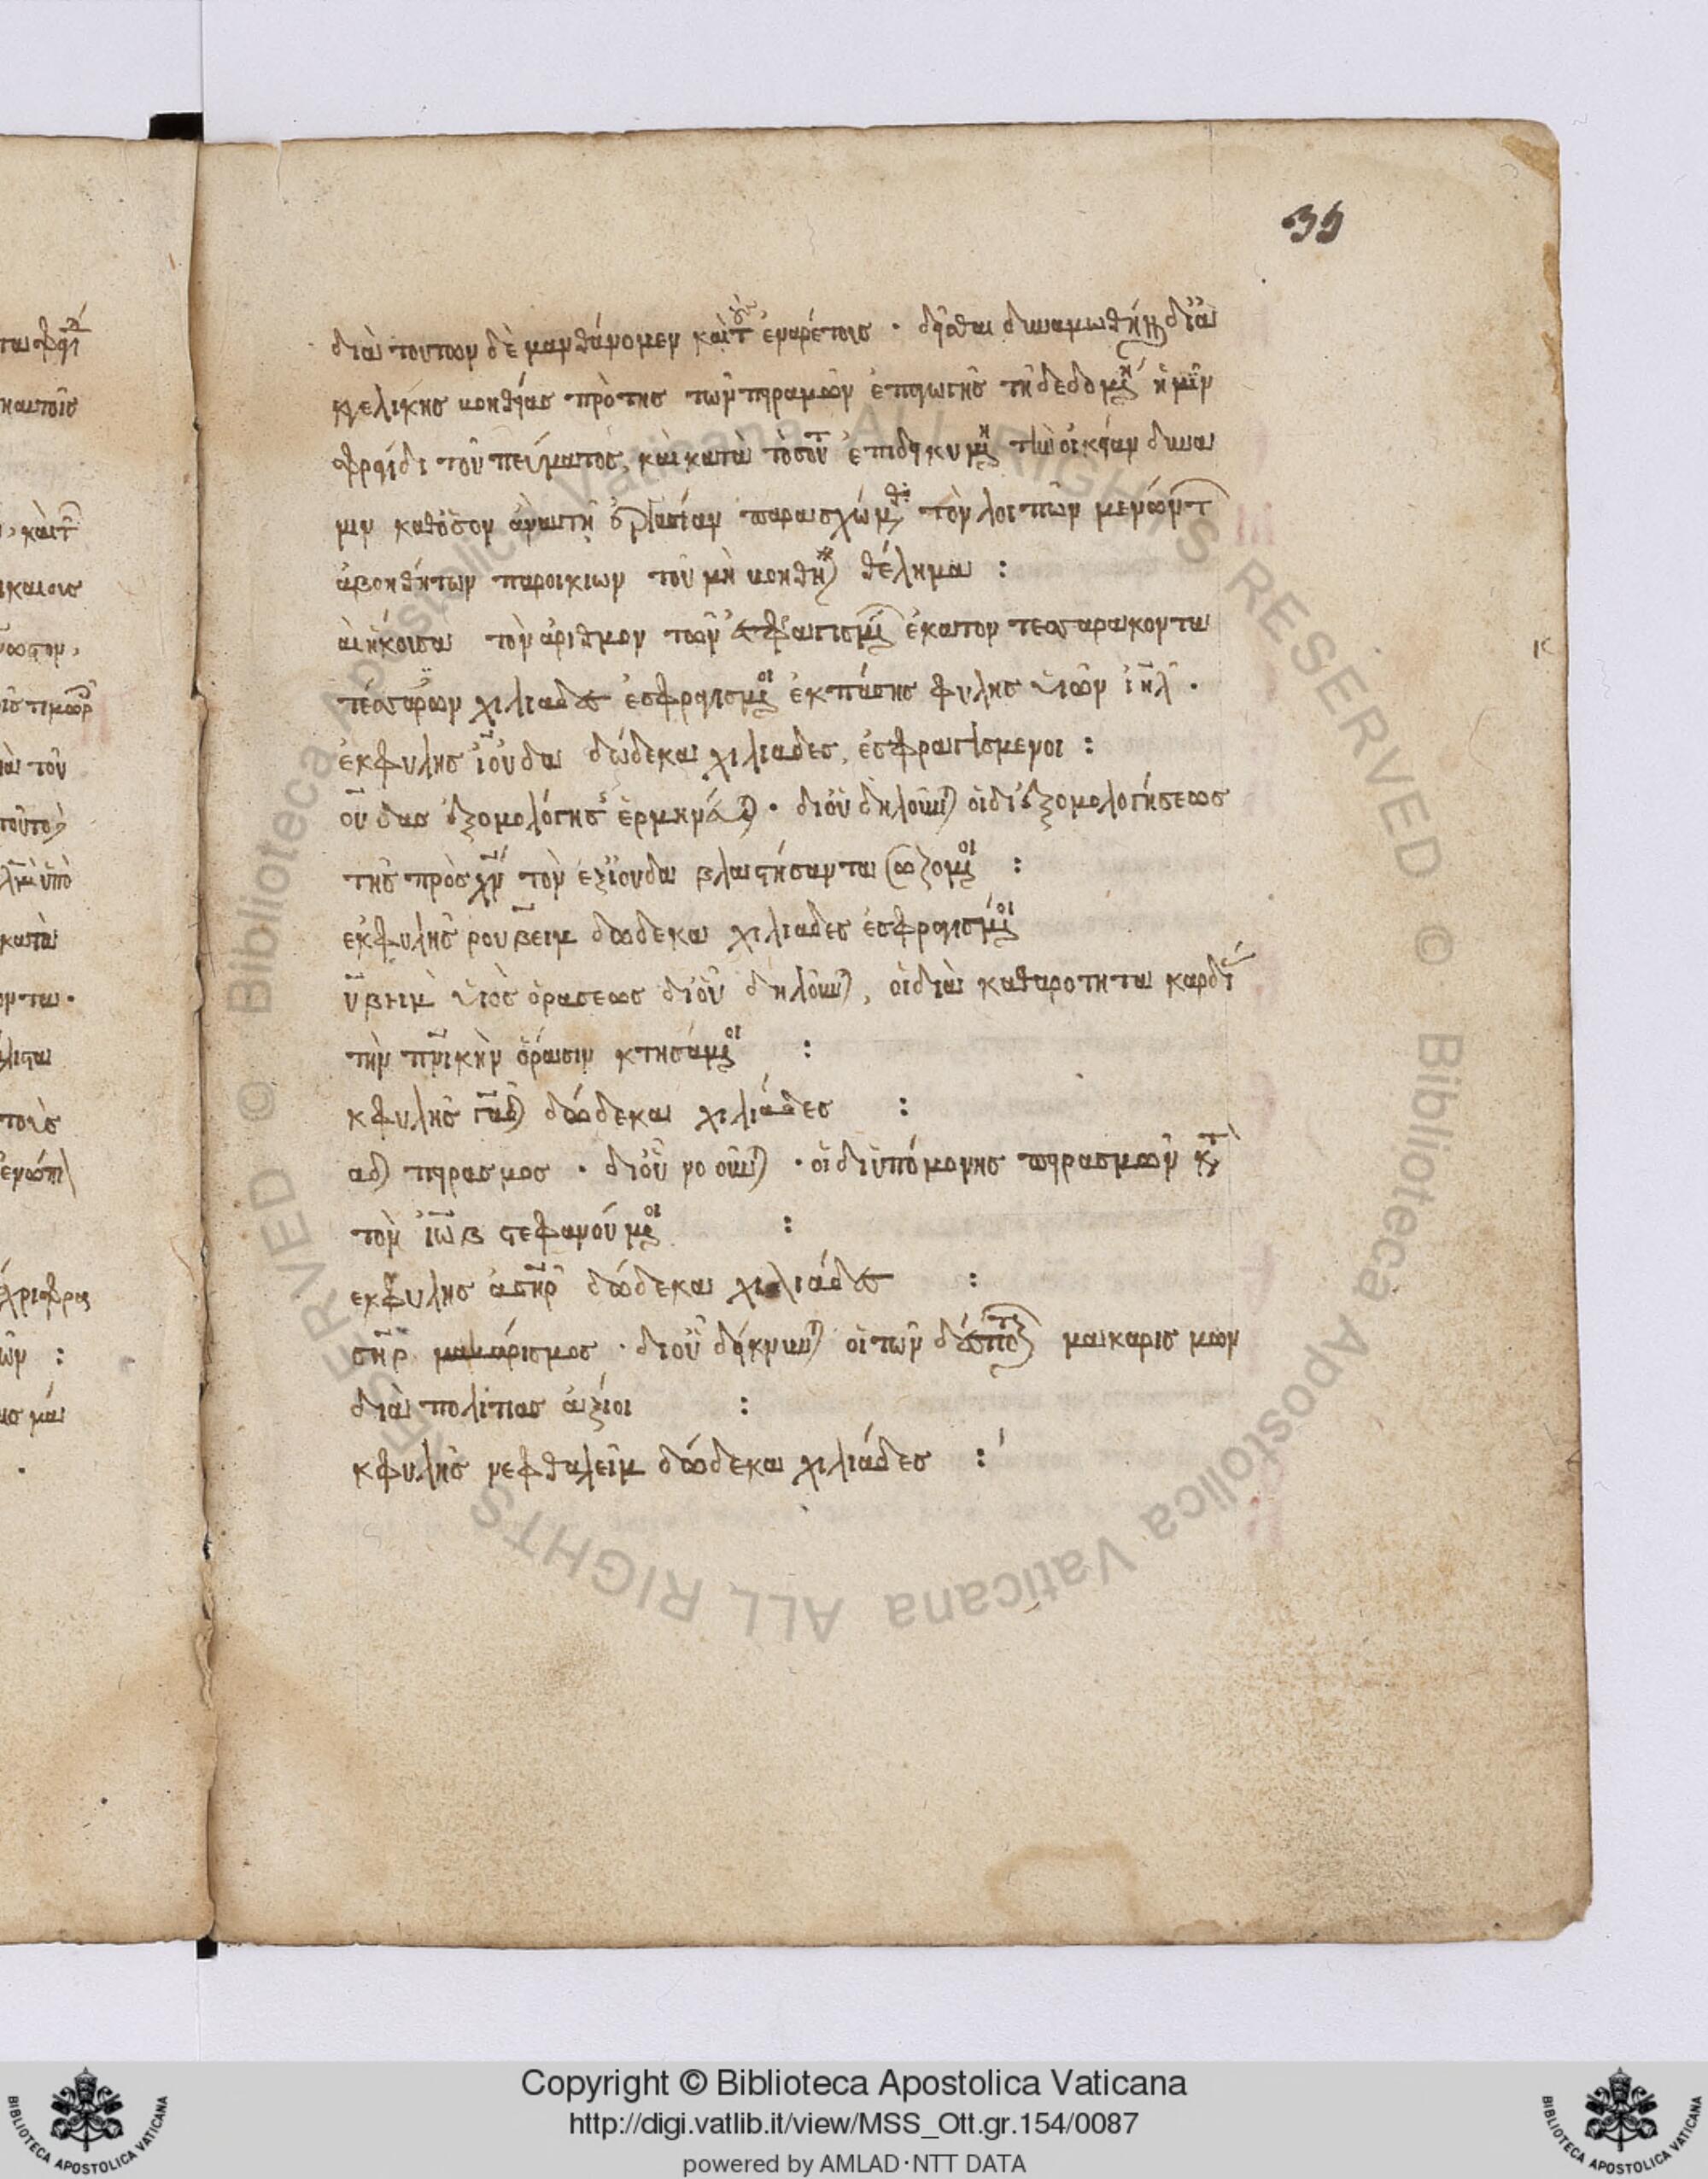 39
διὰ τουτοον δὲ μανθάνομεν καὶ τ ἐναρέτοις · δεῖσθαι δυναμωθῆναι δι ἀ
γελικης βοηθείας πρὸ της τῶν πειρασμῶν ἐπαγωγῆς τῇ δεδομένῃ ἡμῖν
σφραγίδι τοῦ πνεύματος, καὶ κατὰ τὸσοῦτ ἐπιδεικνυμένη τὴν οἰκείαν δυνα
μιν καθόσον ἂν αυτῆ ἐργασίαν παρασχώμεθα τὸν λοιπῶν μενόντ
ἀβοηθήτων παροικιων τοῦ μὴ βοηθῆναι θέλημα :
αὶ ἤκουσα τὸν ἀριθμον τοον ἐσφραγισμέν ἑκατον τεσσαρακοντα
τέσσαρων χιλιαδες ἐσφραγισμένοι ἐκ πάσης φυλης υἱῶν ἰηλ ·
ἐκ φυλης ἰούδα δώδεκα χιλιαδες, ἐσφραγισμενοι :
οὔδας ἐξομολόγησις ἑρμηνεύεται · δι οὗ δηλοῦνται οἱ δι ἐξομολογήσεως
τῆς πρὸς χν τὸν ἐξ ἰουδα βλαστήσαντα σωζομένοι :
εκ φυλῆς ρουβειμ δωδεκα χιλιαδες ἐσφραγισμένοι
ὑβημ υἱὸς ὁρασεως δι οὗ δηλοῦνται, οἱ διὰ καθαροτητα καρδί
τὴν πνικὴν ὅρασιν κτησάμενοι :
κ φυλῆς γαδ δώδεκα χιλιάδες :
αδ πειρασμος · δι οὗ νοοῦνται · οἱ δι ὑπόμονης πειρασμῶν κατ
τὸν ἰὼβ στεφανούμενοι :
εκ φυλης ἀσηρ δώδεκα χιλιάδες :
σηρ μακάρισμος · δι οὗ δείκνυνται οἱ τῶν δεσποτ μακαρισμων
διὰ πολιτιας ἀξιοι :
κ φυλῆς νεφθαλεὶμ δώδεκα χιλιάδες :
Copyright © Biblioteca Apostolica Vaticana
http://digi.vatlib.it/view/MSS_Ott.gr.154/0087
powered by AMLAD·NTT DATA